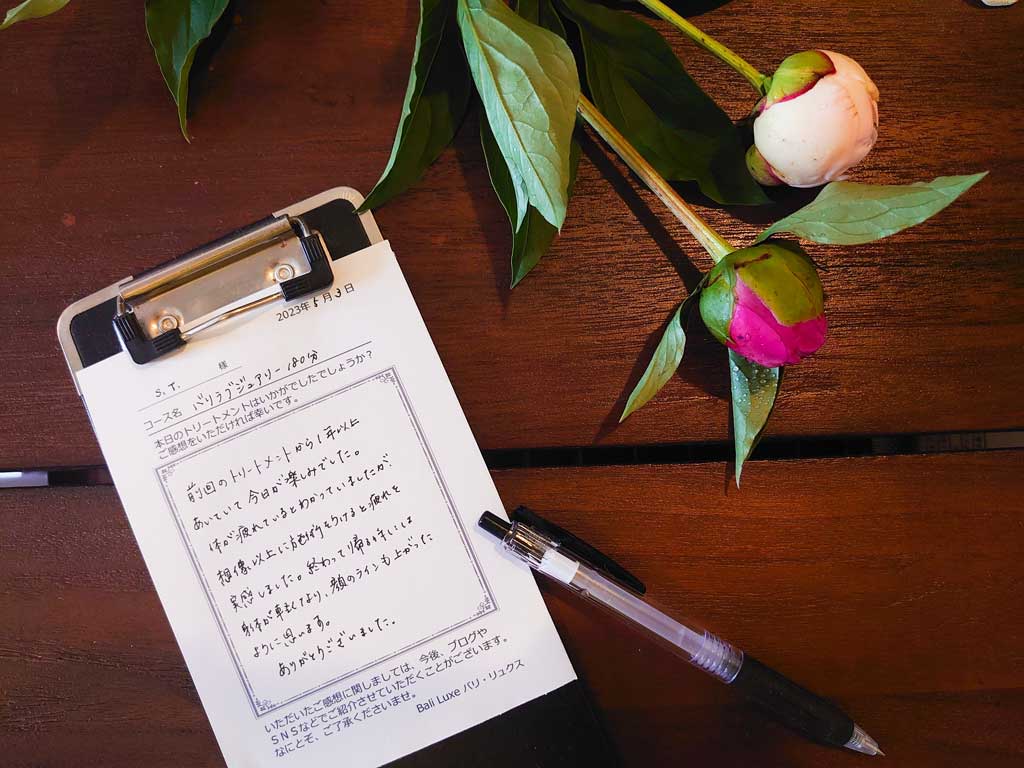 2023年5月3日
S.T. 様
コース名 バリラグジュアリー180分
本日のトリートメントはいかがでしたでしょうか?
ご感想をいただければ幸いです。
前回のトリートメントから1年以上
あいていて今日が楽しみでした。
体が疲れているとわかっていましたが、
想像以上に施術を受けると疲れを
実感しました。終わって帰る
体が軽くなり、顔のラインも上がった
ように思います。
ありがとうございました。
いただいたご感想に関しましては、今後、ブログや
SNSなどでご紹介させていただくことがございます。
なにとぞ、ご了承くださいませ。
Bali Luxe バリ・リュクス